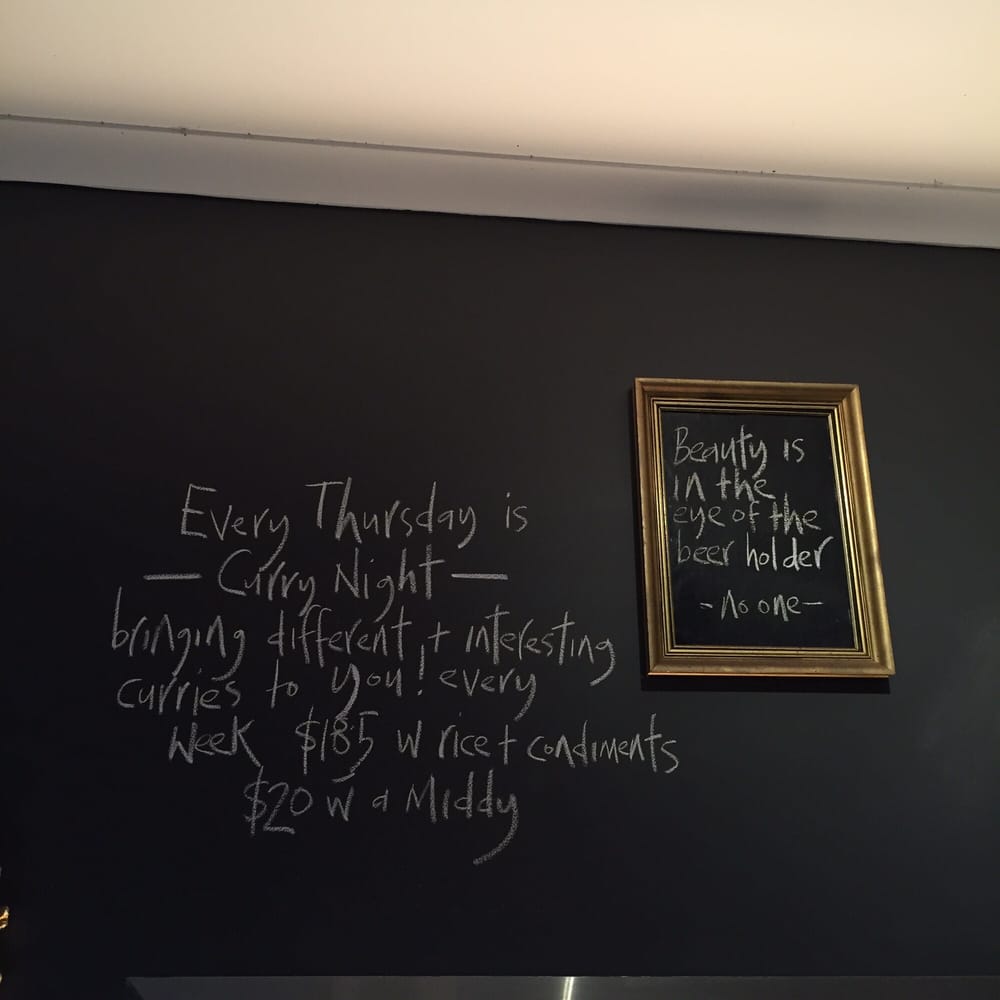 Every Thursday is
— Curry Night —
bringing different + interesting
curries to you! every
week $185 w rice + condiments
$20 w a Middy
Beauty is
in the
eye of the
beer holder
- no one -